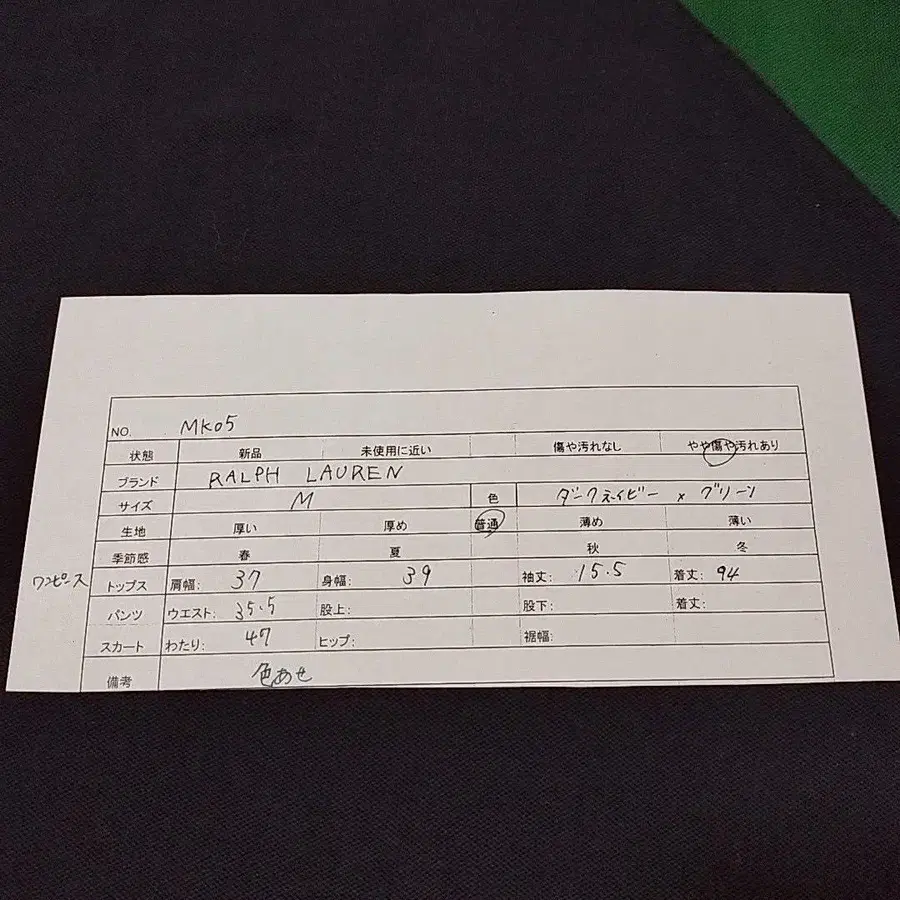 NO. MK05
状態 新品 未使用に近い 傷や汚れなし やや傷や汚れあり
ブランド RALPH LAUREN
サイズ M 色 ダークネイビー × グリーン
生地 厚い 厚め 普通 薄め 薄い
季節感 春 夏 秋 冬
ワンピース トップス 肩幅: 37 身幅: 39 袖丈: 15.5 着丈: 94
パンツ ウエスト: 35.5 股上: 股下: 着丈:
スカート わたり: 47 ヒップ: 裾幅:
備考 色あせ